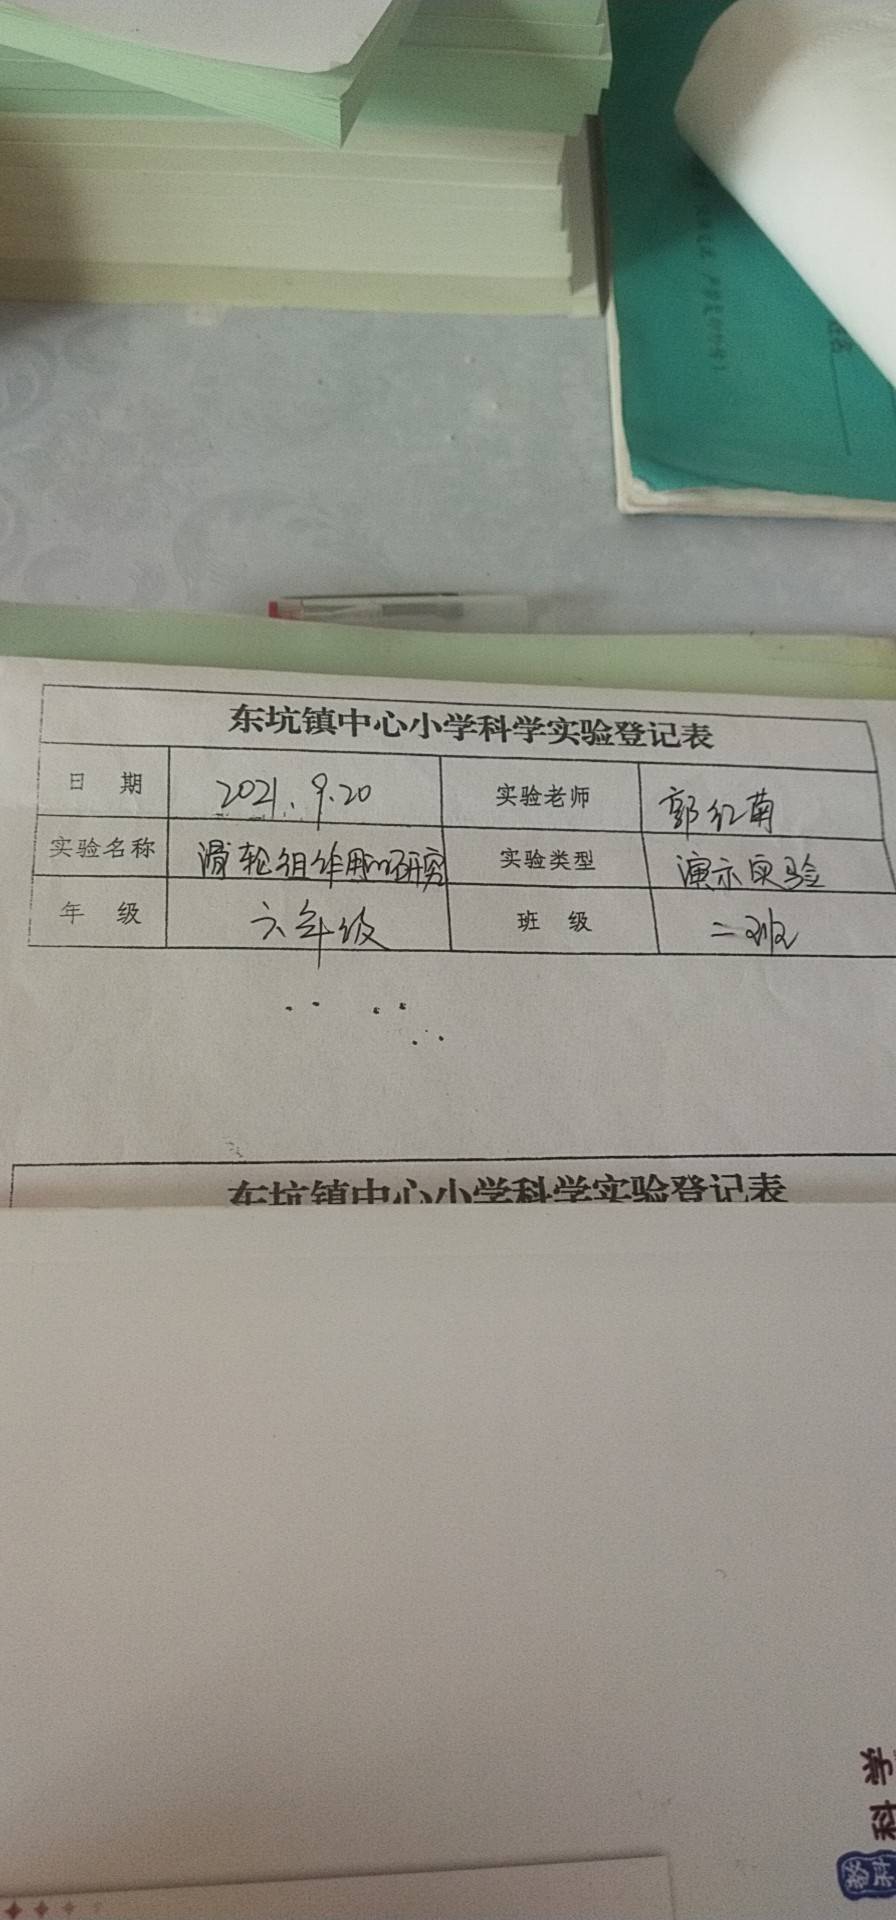 东坑镇中心小学科学实验登记表
日 期 2021.9.20 实验老师 郭红菊
实验名称 滑轮组作用的研究 实验类型 演示实验
年 级 六年级 班 级 二班
东坑镇中心小学科学实验登记表
科学
教科